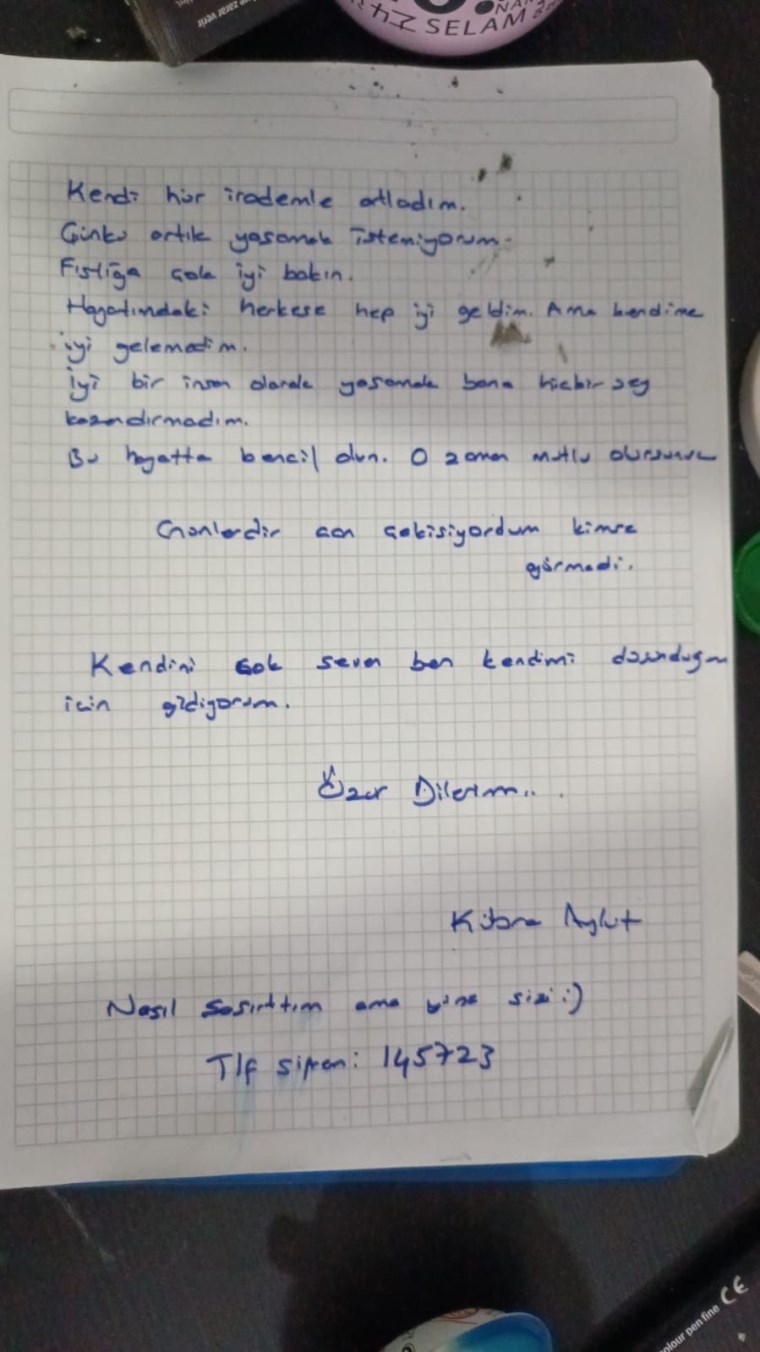 SELAM
Kendi hür irademle atladım.
Çünkü artık yaşamak istemiyorum.
Fıstığa çok iyi bakın.
Hayatımdaki herkese hep iyi geldim. Ama kendime
iyi gelemedim.
İyi bir insan olarak yaşamak bana hiçbir şey
kazandırmadım.
Bu hayatta bencil olun. O zaman mutlu olursunuz
Günlerdir can çekişiyordum kimse
görmedi.
Kendini çok seven ben kendimi düşündüğüm
için gidiyorum.
Özür Dilerim..
Kübra Aykut
Nasıl Şaşırttım ama yine sizi :)
Tlf şifrem: 145723
colour pen fine CE